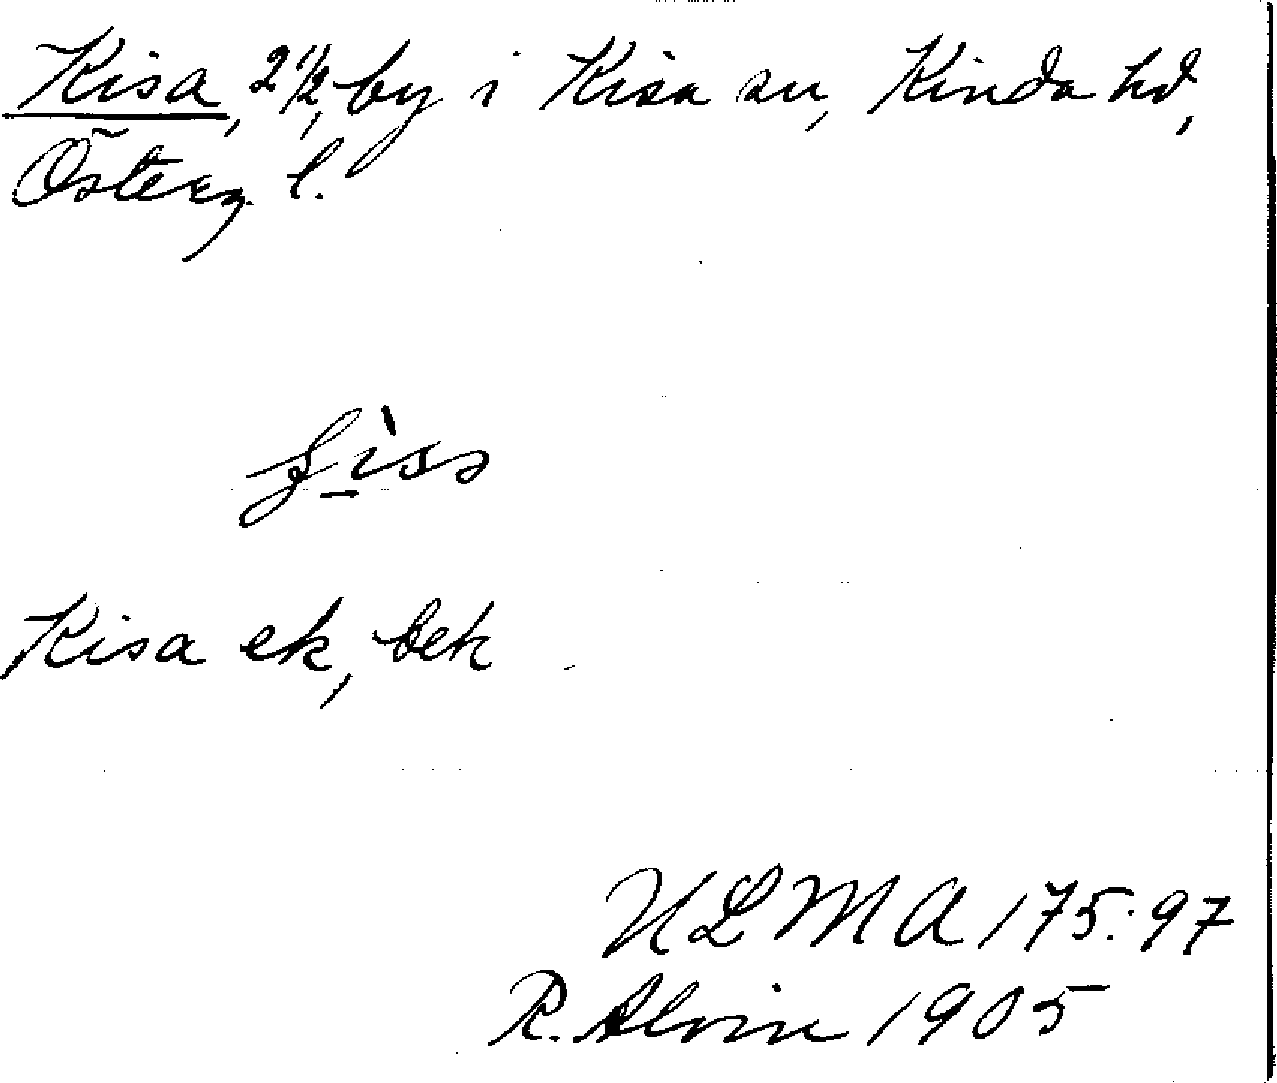 Kisa, 2 1/2, by i Kisa sn, Kinda hd,
Österg. l.
Kisa ek, bek
ULMA 175:97
R. Alvin 1905